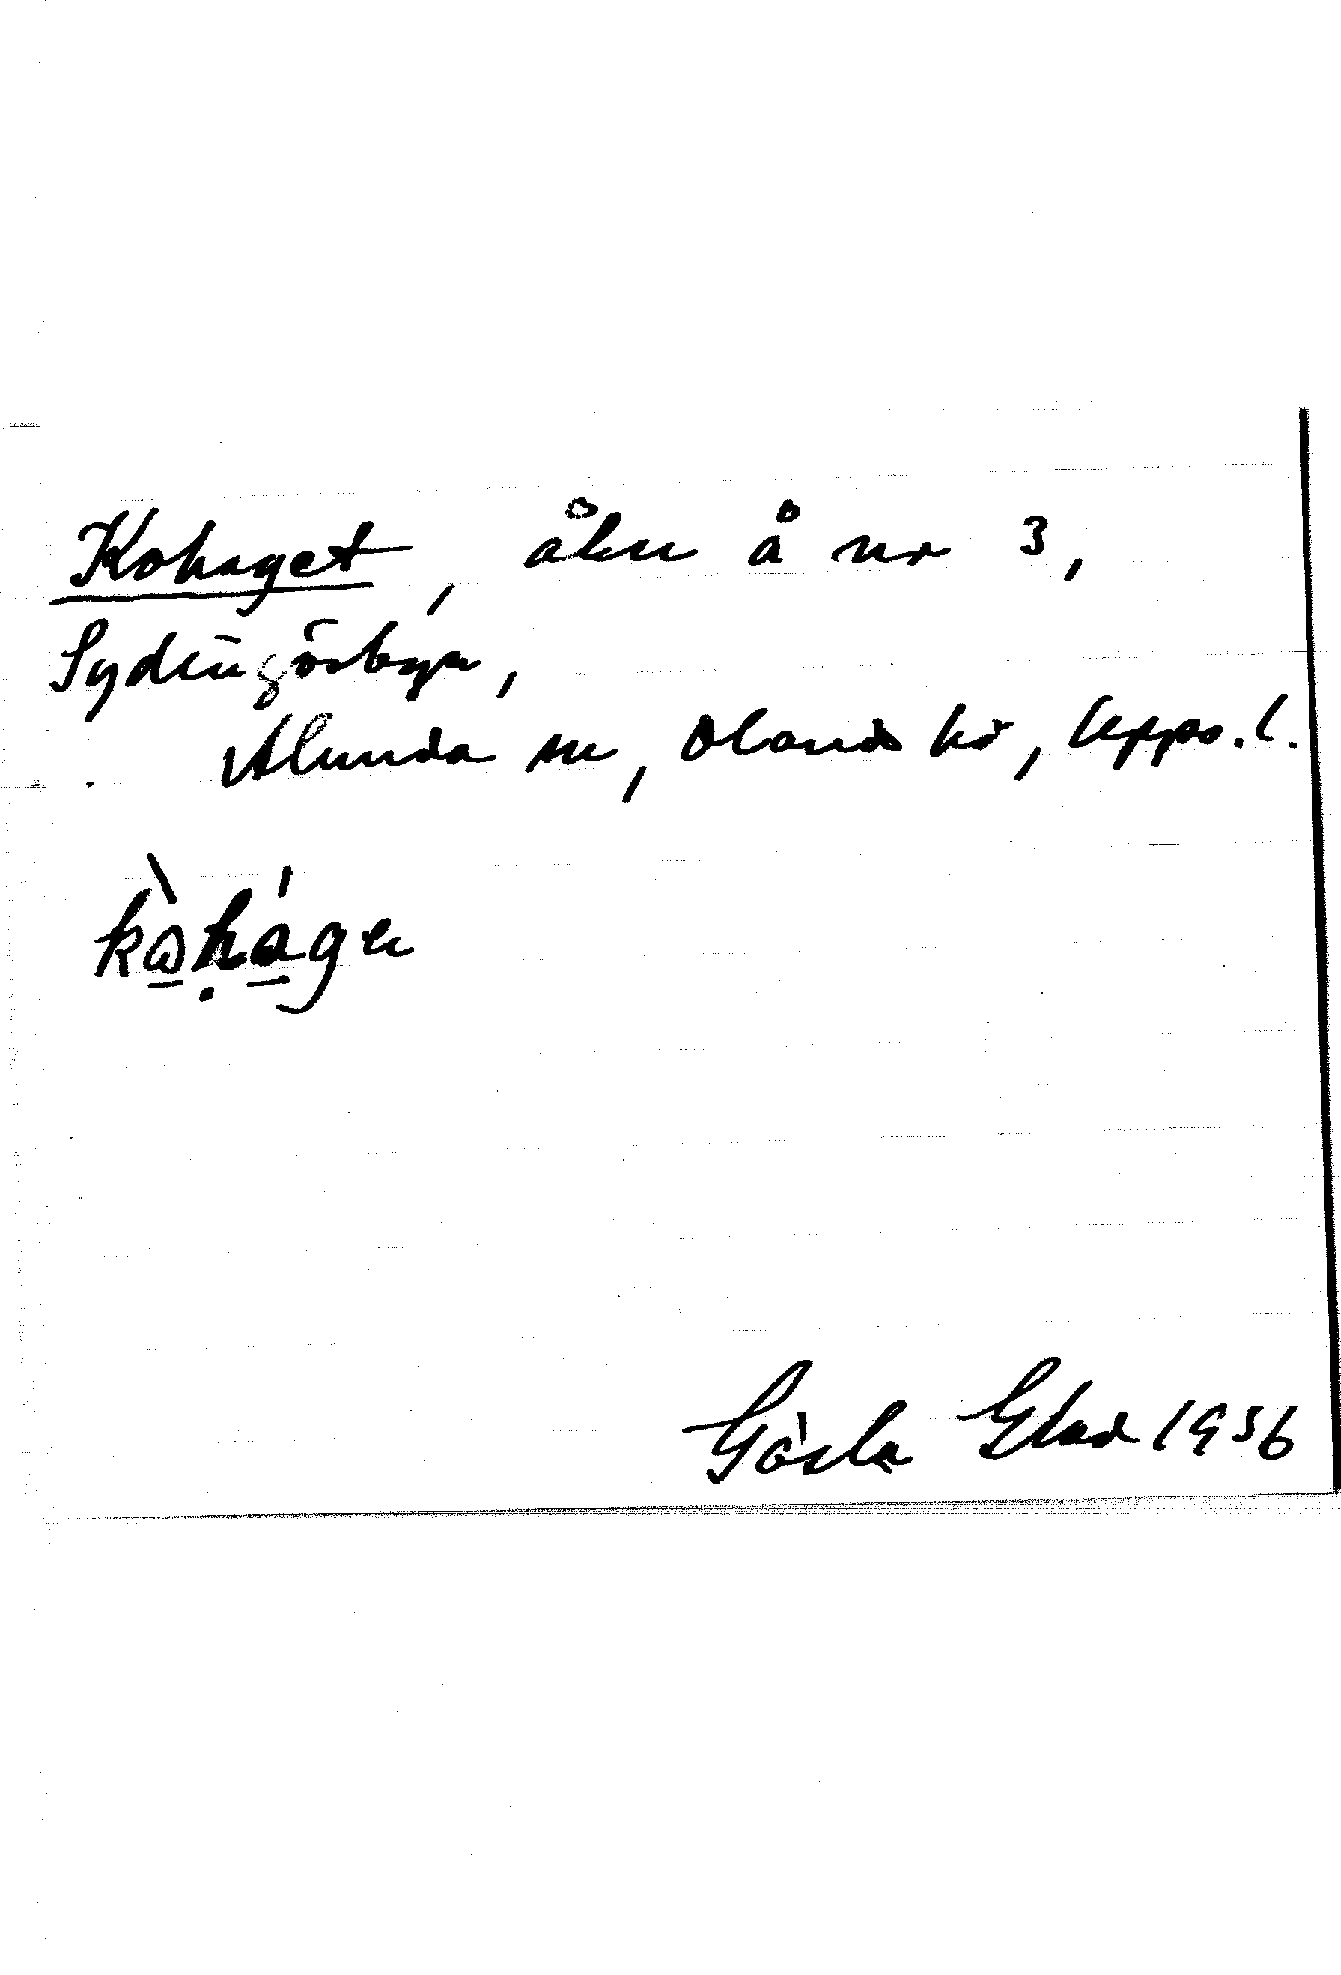 Kohaget, åker å nr 3,
Sydingörbyn,
Alunda sn, Olands hd, Upps. l.
kòhágen
Gösta Ekad 1936